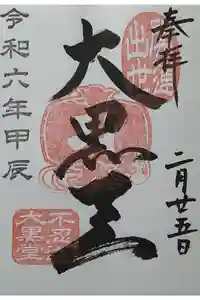 奉拝
大黒天
二月廿五日
令和六年甲辰
不忍池
大黒堂